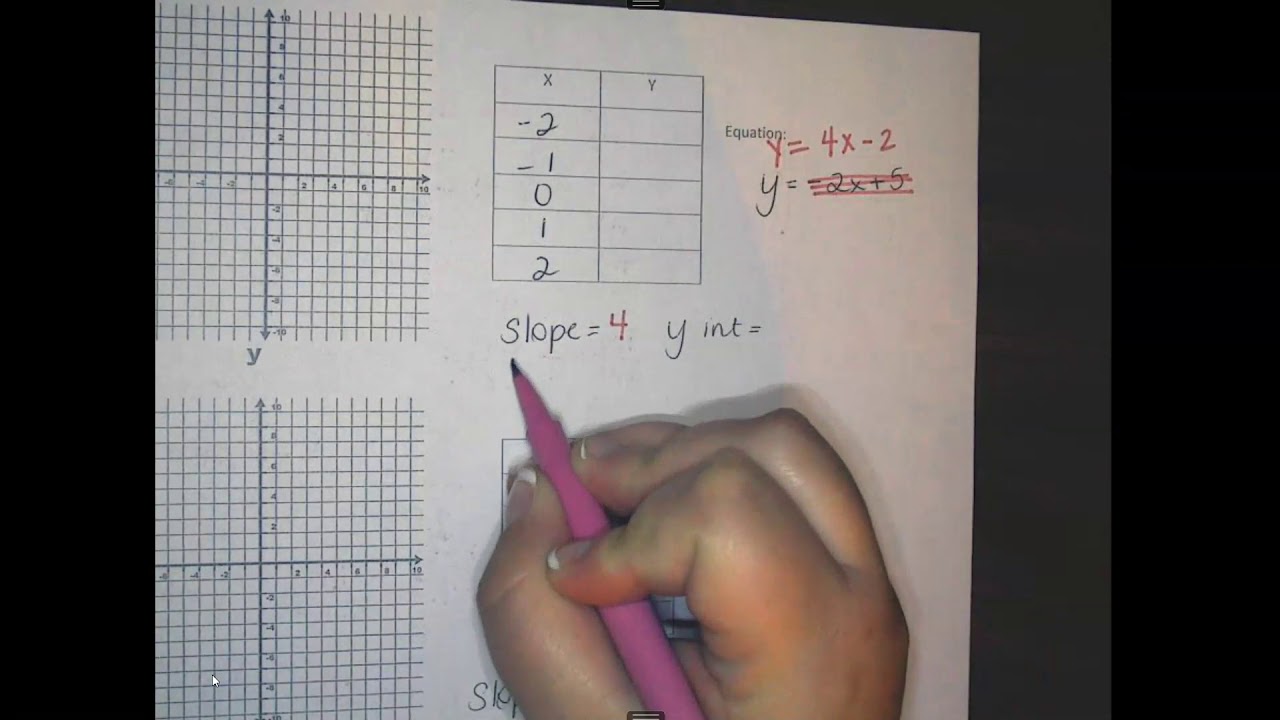 10
8
6
4
2
-6 -4 -2 2 4 6 8 10
-2
-4
-6
-8
-10
y
X Y
-2
-1
0
1
2
Equation: y = 4x - 2
y = -2x+5
Slope = 4 y int =
10
8
6
4
2
-6 -4 -2 2 4 6 8 10
-2
-4
-6
-8
-10